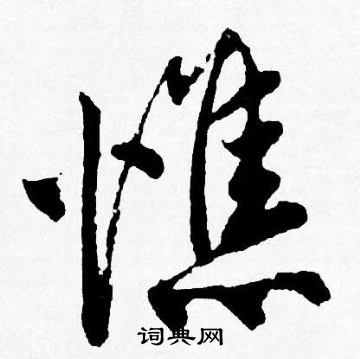 憔
词典网